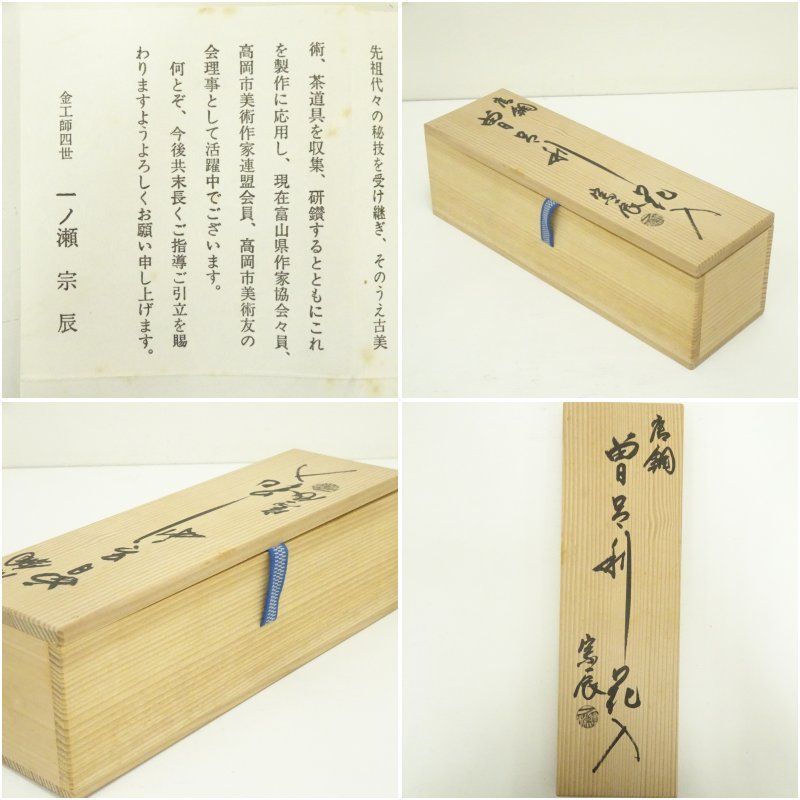 先祖代々の秘技を受け継ぎ、そのうえ古美
術、茶道具を収集、研鑽するとともにこれ
を製作に応用し、現在富山県作家協会々員、
高岡市美術作家連盟会員、高岡市美術友の
会理事として活躍中でございます。
何とぞ、今後共末長くご指導ご引立を賜
わりますようよろしくお願い申し上げます。
金工師四世 一ノ瀬宗辰
唐銅
曽呂利花入
宗辰
唐銅
曽呂利花入
宗辰
唐銅
曽呂利花入
宗辰